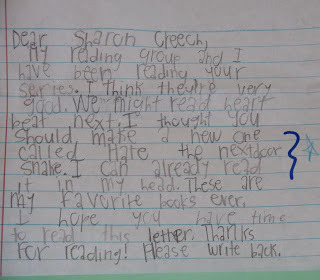 Dear Sharon Creech,
My reading group and I
have been reading your
series. I think they're very
good. We might read heart
beat next. I thought you
should make a new one
called I hate the nextdoor
snake. I can already read
it in my hedd. These are
my favorite books ever.
I hope you have time
to read this letter. Thanks
for reading! Please write back.